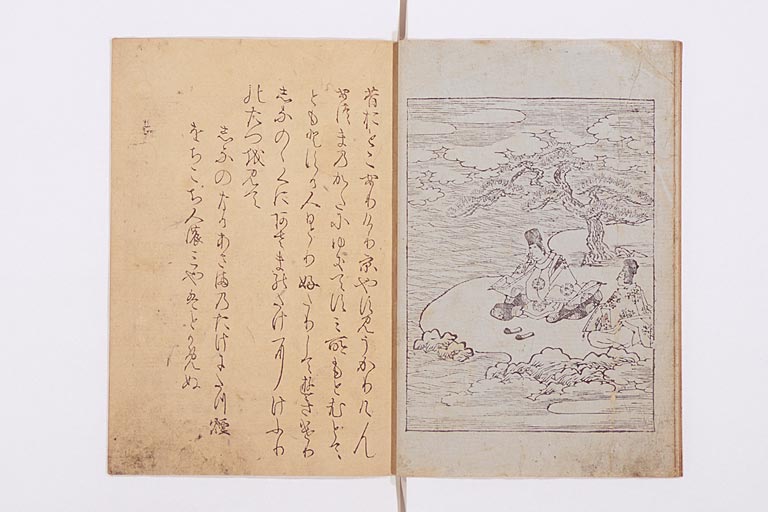 昔おとこ有けり京やすみうかりけん
あつまのかたにゆきてすみ所もとむとて
ともとする人ひとりふたりしてゆきけり
しなのゝくにあさまのたけにけふり
のたつを見て
しなのなるあさまのたけにたつ煙
をちこち人のみやはとかめぬ